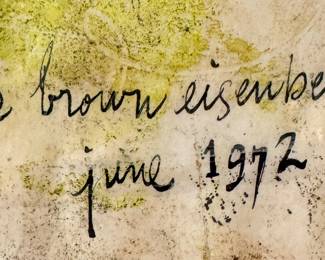 brown eisenbe
june 1972